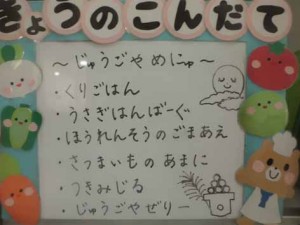 きょうのこんだて
～じゅうごや めにゅ～
・くりごはん
・うさぎはんばーぐ
・ほうれんそうのごまあえ
・さつまいもの あまに
・つきみじる
・じゅうごやぜりー